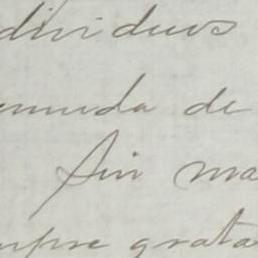 dividuos
muda de
Sin ma
mpre grata